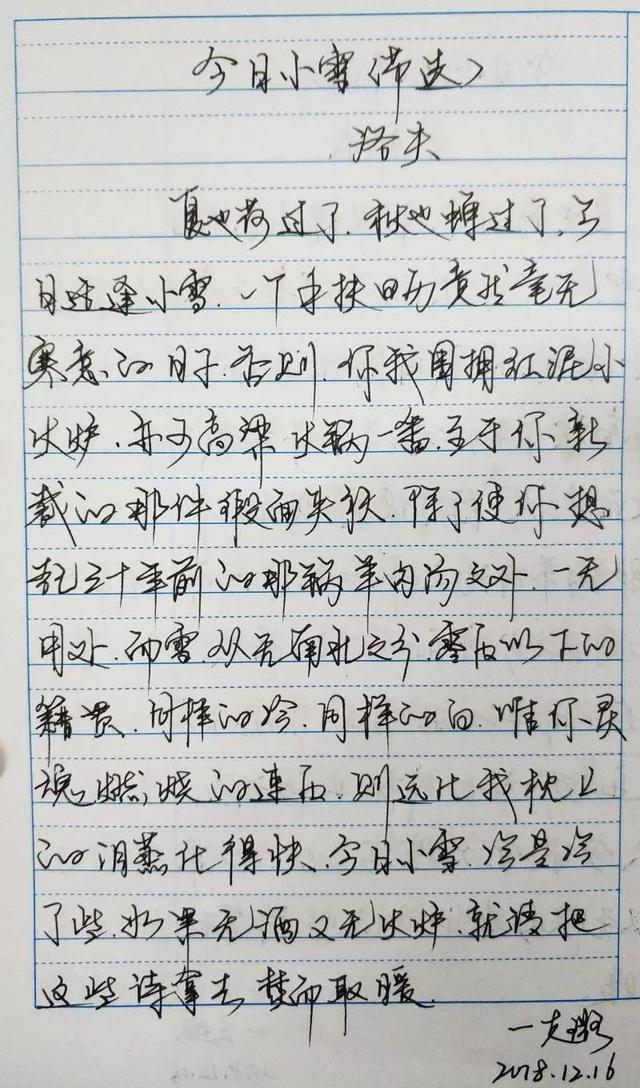 今日小雪(节选)
洛夫
夏也荷过了.秋也蝉过了.今
日适逢小雪.一个手扶日历竟然毫无
寒意的日子.否则.你我围拥红泥小
火炉.亦可高粱火锅一番.至于你新
裁的那件缎面夹袄.除了使你想
起三十年前的那锅羊肉汤之外.一无
用处.而雪.从无南北之分.零度以下的
籍贯.同样的冷.同样的白.唯你灵
魂燃烧的速度.则远比我枕上
的泪蒸化得快.今日小雪.冷是冷
了些.如果无酒又无火炉.就请把
这些诗拿去焚而取暖.
一克
2018.12.16